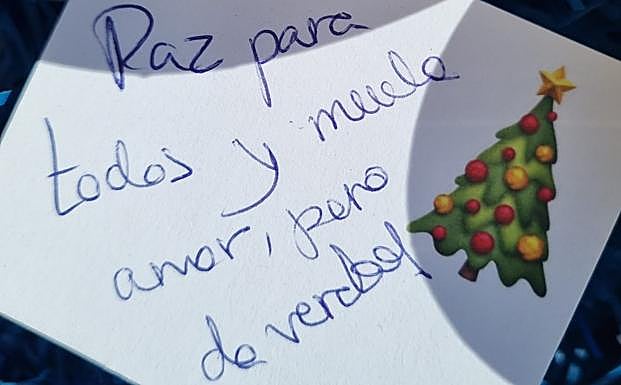 Paz para
todos y mucho
amor, pero
de verdad